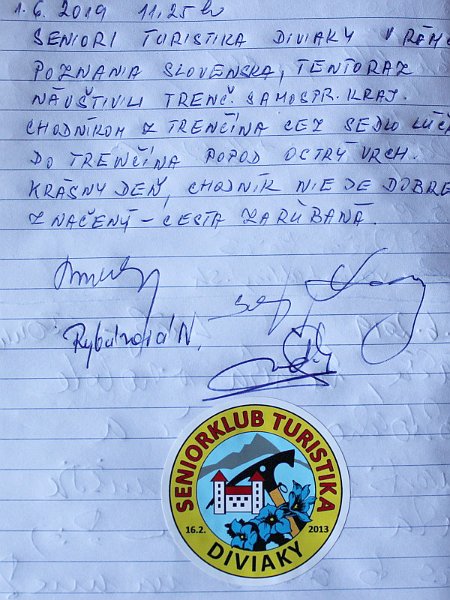 1.6.2019 11,25 h
SENIORI TURISTIKA DIVIAKY V RÁM
POZNANIA SLOVENSKA, TENTORAZ
NÁVŠTIVILI TRENČ. SAMOSPR. KRAJ.
CHODNÍKOM Z TRENČÍNA CEZ SEDLO
DO TRENČÍNA POPOD OSTRÝ VRCH.
KRÁSNY DEŇ, CHODNÍK NIE JE DOBRE
ZNAČENÝ – CESTA ZARÚBANÁ.
SENIORKLUB TURISTIKA
16.2. 2013
DIVIAKY